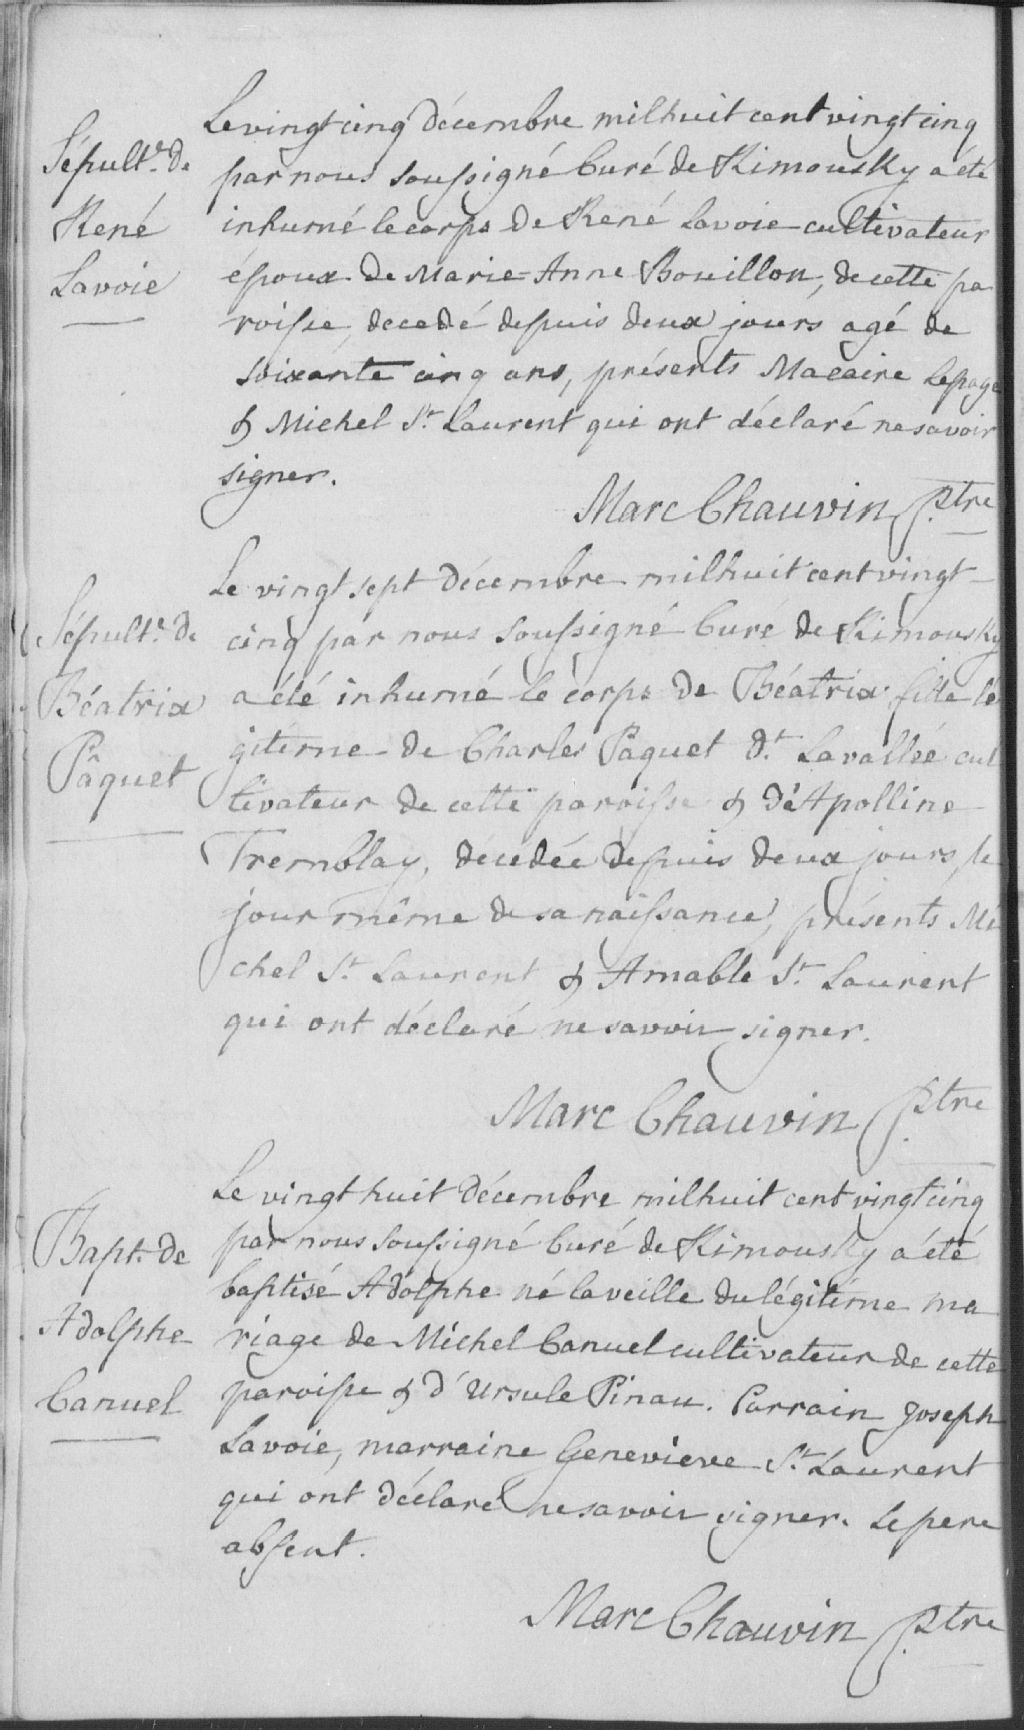 Sépult.e de
René
Lavoie
Le vingt cinq décembre mil huit cent vingt cinq
par nous soussigné Curé de Rimousky a été
inhumé le corps de René Lavoie cultivateur
époux de Marie-Anne Bouillon, de cette pa
roisse, decedé depuis deux jours agé de
soixante cinq ans, présents Macaire Lepage
& Michel St. Laurent qui ont déclaré ne savoir
signer.
Marc Chauvin Ptre
Sépult.e de
Béatrix
Pâquet
Le vingt sept décembre mil huit cent vingt
cinq par nous soussigné Curé de Rimousky
a été inhumé le corps de Béatrix fille lé
gitime de Charles Paquet dt. Lavallée cul
tivateur de cette paroisse & d'Apolline
Tremblay, décédée depuis deux jours, le
jour même de sa naissance, présents Mi
chel St. Laurent & Amable St. Laurent
qui ont déclaré ne savoir signer.
Marc Chauvin Ptre
Bapt. de
Adolphe
Canuel
Le vingt huit décembre mil huit cent vingt cinq
par nous soussigné Curé de Rimousky a été
baptisé Adolphe né la veille du légitime ma
riage de Michel Canuel cultivateur de cette
paroisse & d'Ursule Pinau. Parrain Joseph
Lavoie, marraine Genevieve St. Laurent
qui ont déclaré ne savoir signer. Le pere
absent.
Marc Chauvin Ptre